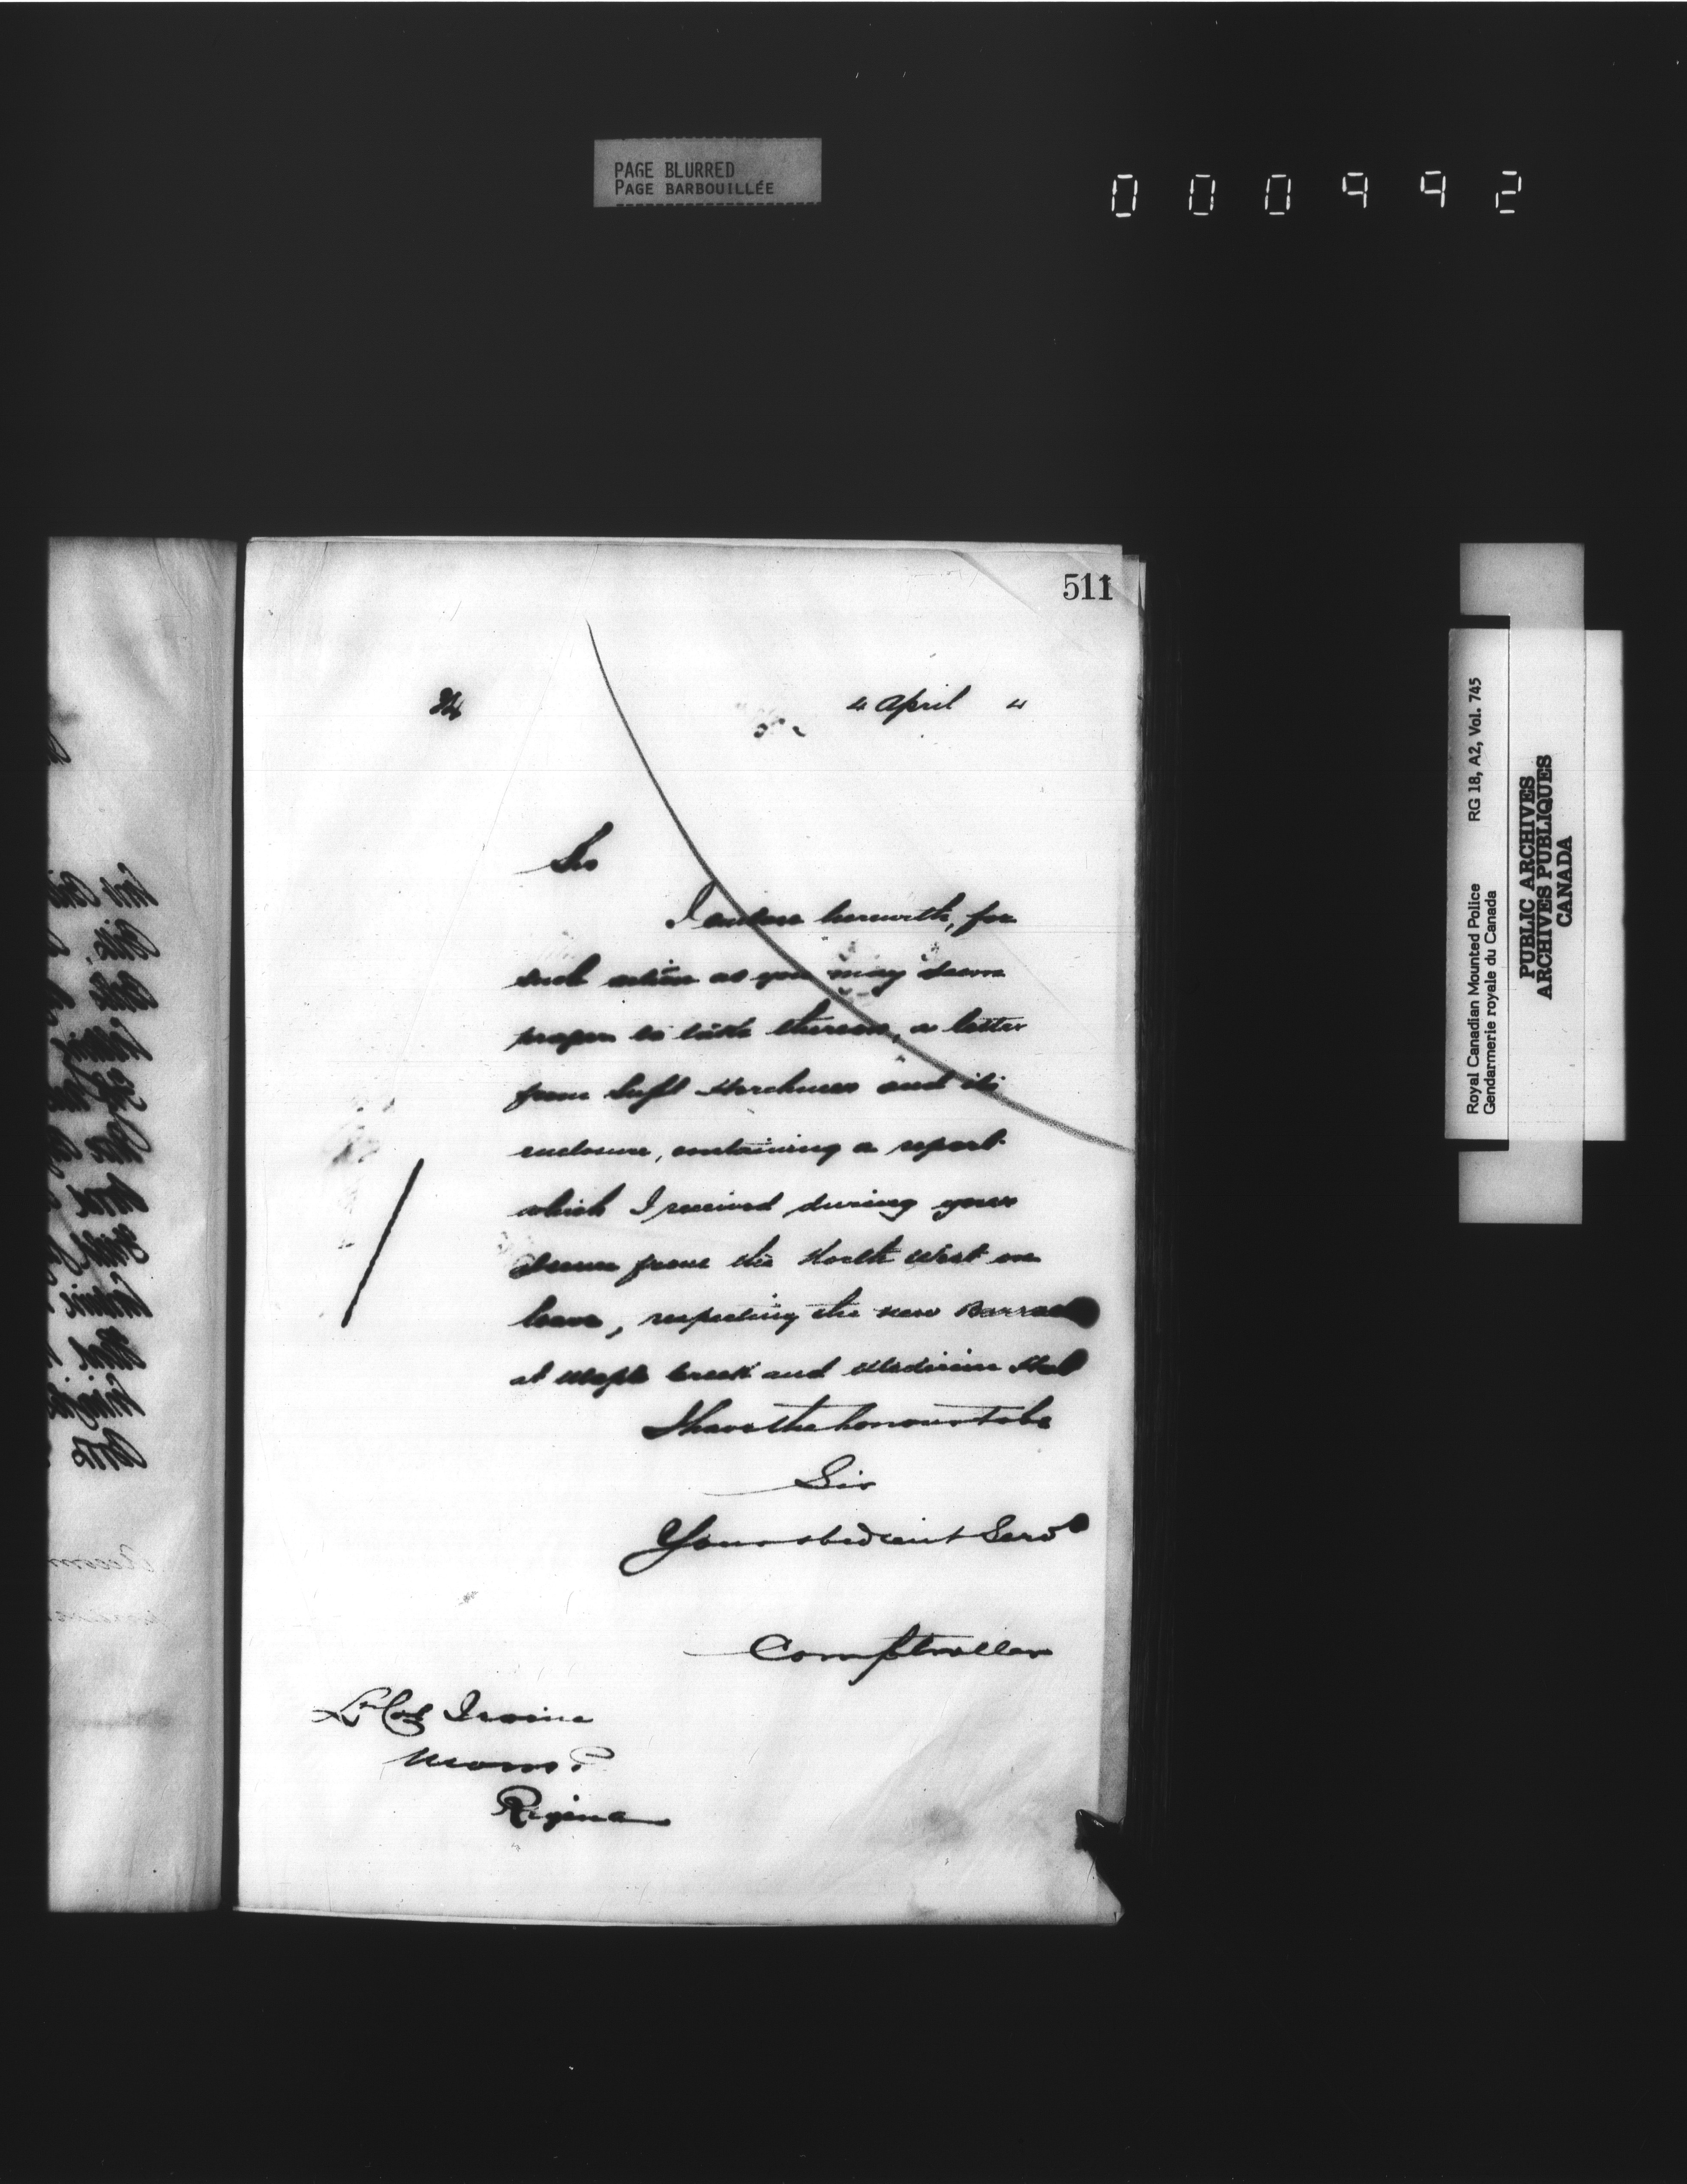 PAGE BLURRED
PAGE BARBOUILLÉE
000992
511
4 April 4
Sir
I enclose herewith, for
such action as you may deem
proper to take thereon, a letter
from Supt Herchmer and its
enclosure, containing a report
which I received during your
absence from the North West on
leave, respecting the new Barrac
at Maple Creek and Medicine Hat
I have the honour to be
Sir
Your obedient Servt
Comptroller
Lt Col Irvine
Regina
Royal Canadian Mounted Police RG 18, A2, Vol. 745
Gendarmerie royale du Canada
PUBLIC ARCHIVES
ARCHIVES PUBLIQUES
CANADA